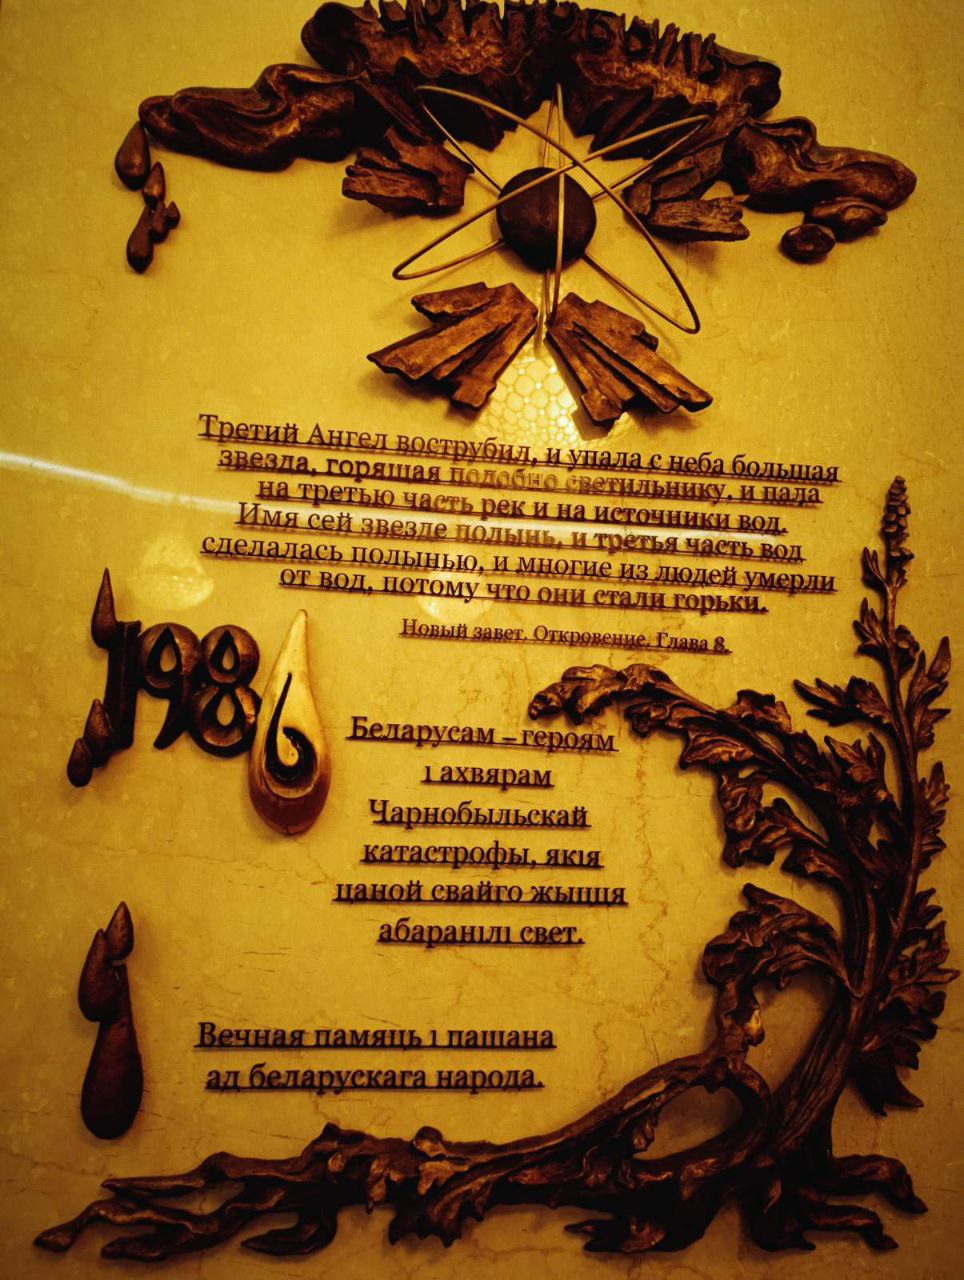 Третий Ангел вострубил, и упала с неба большая
звезда, горящая подобно светильнику, и пала
на третью часть рек и на источники вод.
Имя сей звезде полынь, и третья часть вод
сделалась полынью, и многие из людей умерли
от вод, потому что они стали горьки.
Новый завет. Откровение. Глава 8.
1986
Беларусам – героям
і ахвярам
Чарнобыльскай
катастрофы, якія
цаной свайго жыцця
абаранілі свет.
Вечная памяць і пашана
ад беларускага народа.